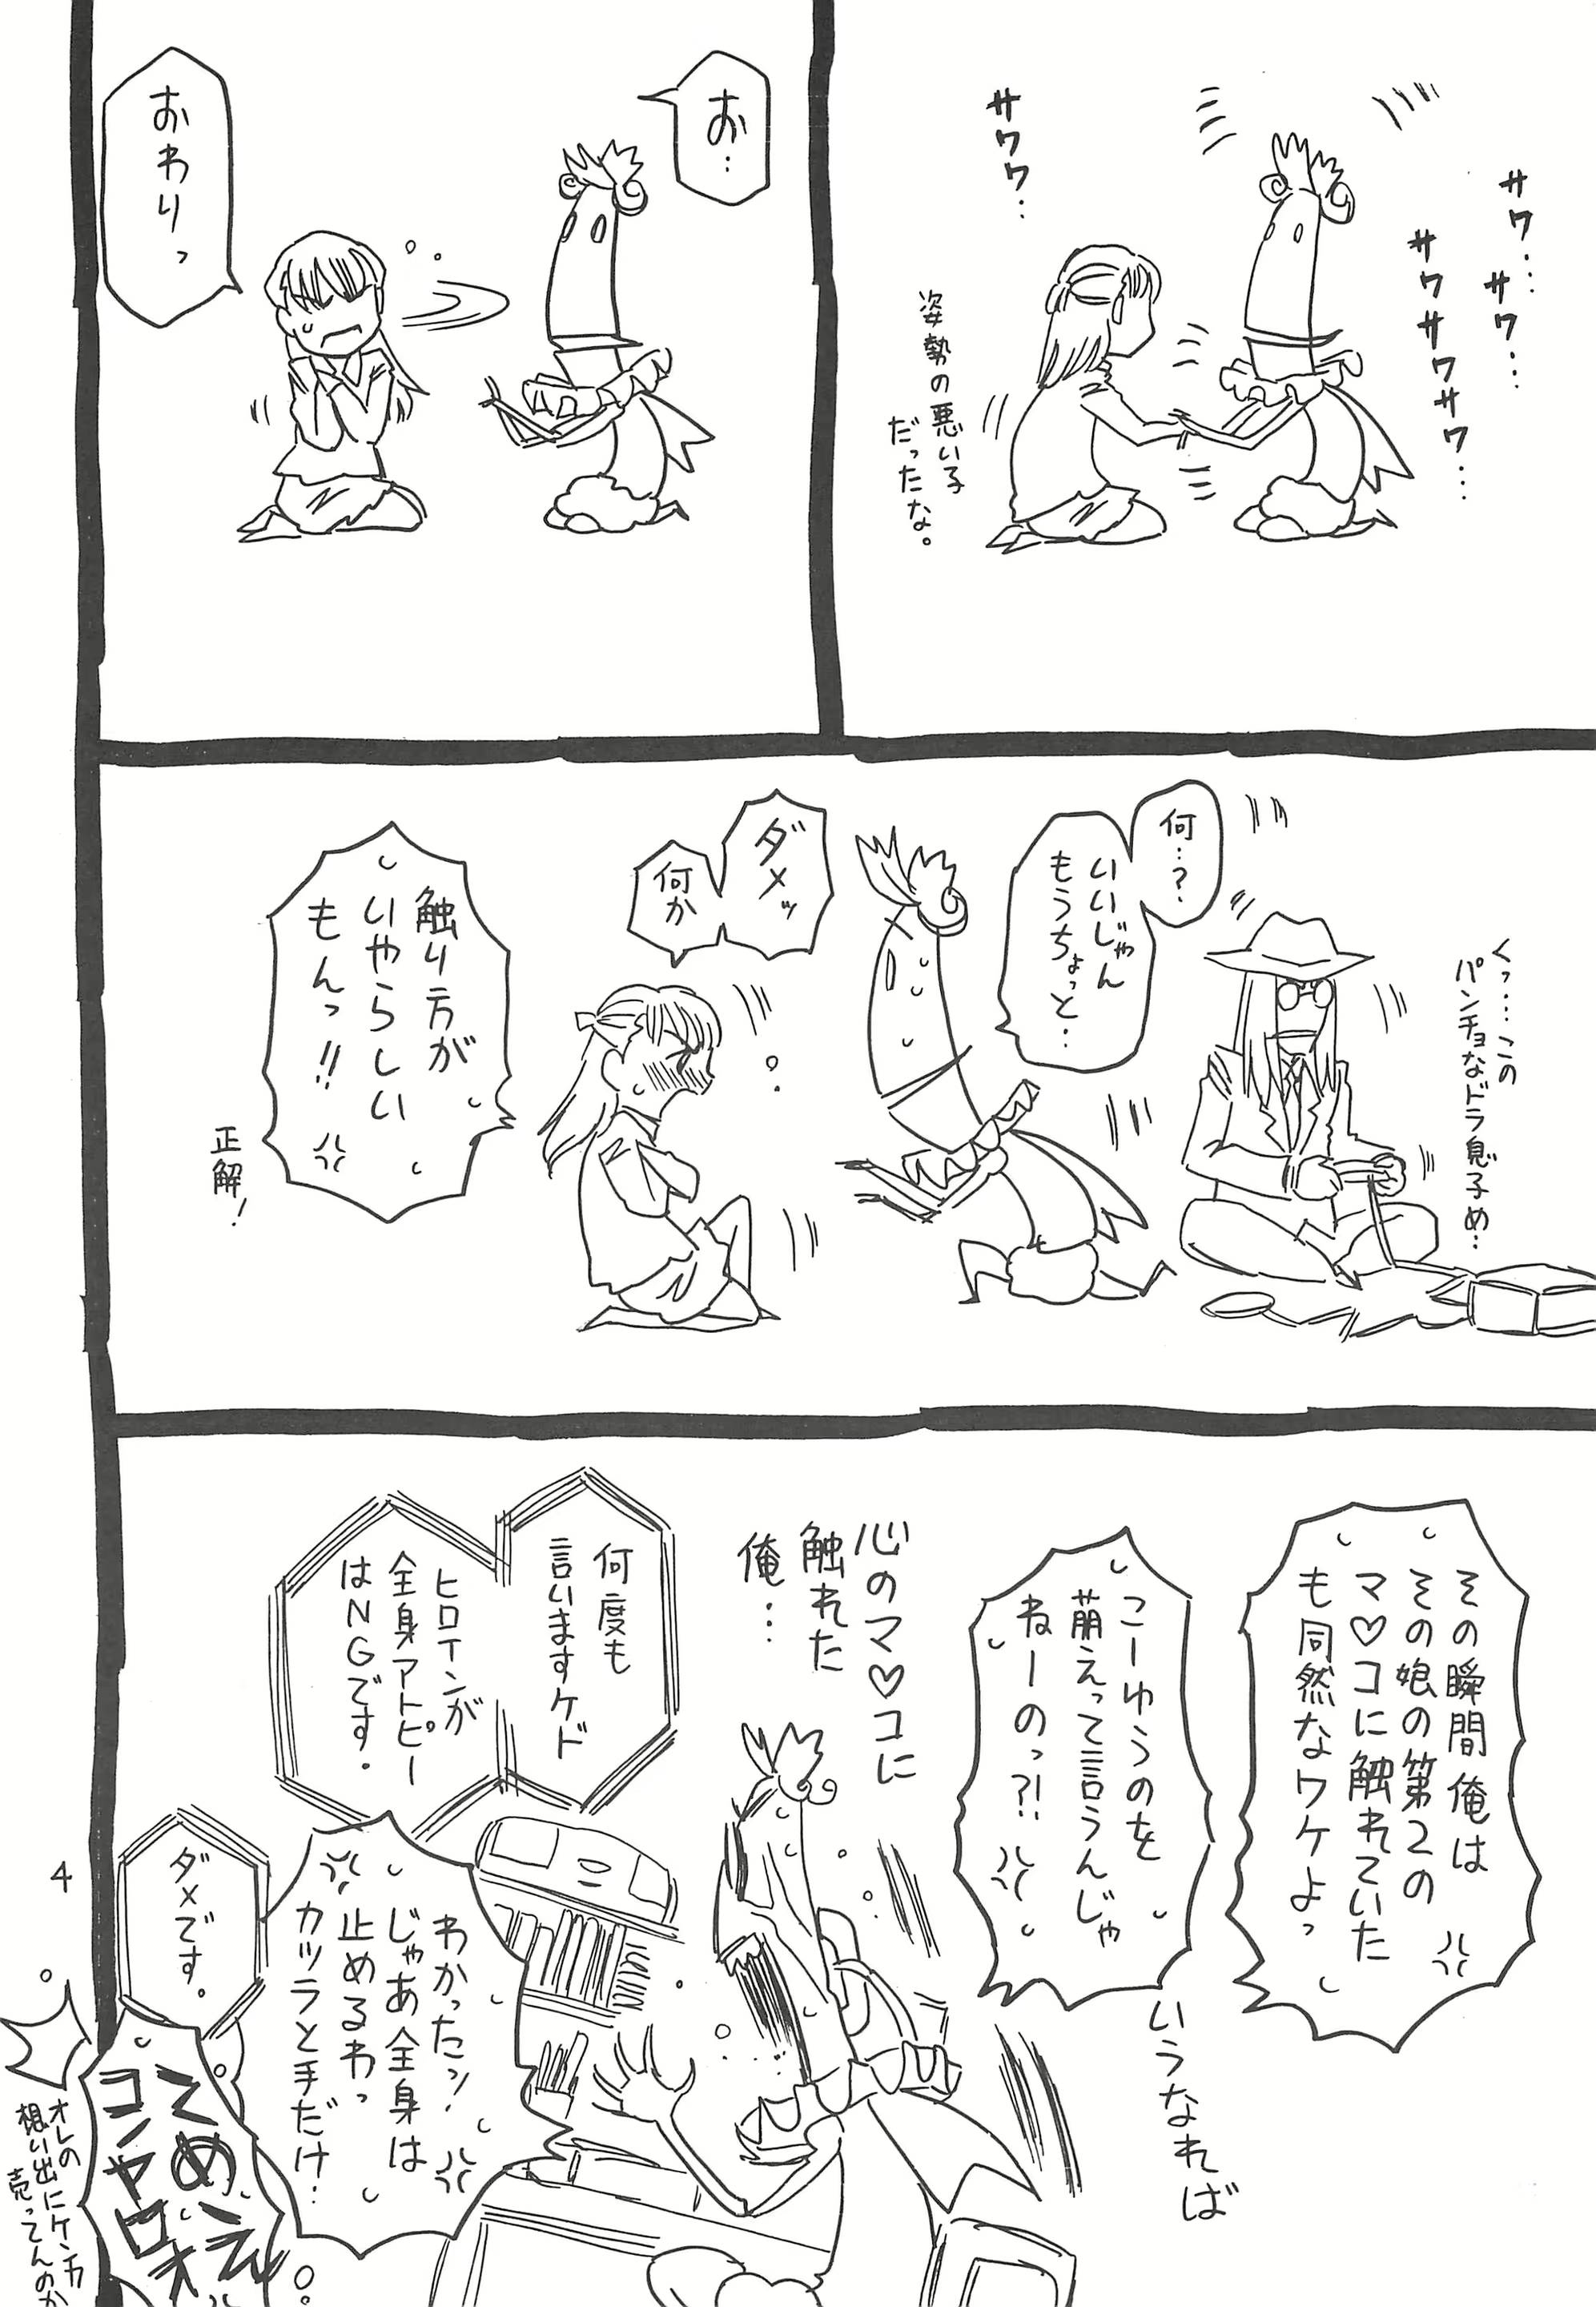 サワ…
サワ…
サワサワサワ…
サワワ…
姿勢の悪い子
だったな。
お…
おわりっ
くっ…この
パンチョなドラ息子め…
何…?
いいじゃん
もうちょっと…
ダメッ
何か
触り方が
いやらしい
もんっ!!
正解!
その瞬間俺は
その娘の第2の
マ♡コに触れていた
も同然なワケよっ
いうなれば
こーゆうのを
萌えって言うんじゃ
ねーのっ?!
心のマ♡コに
触れた
俺…
何度も
言いますケド
ヒロインが
全身アトピー
はNGです。
わかったッ!
じゃあ全身は
止めるわっ
カツラと手だけ…
ダメです。
てめェ
コンヤロオ
オレの
想い出にケンカ
売ってんのか
4